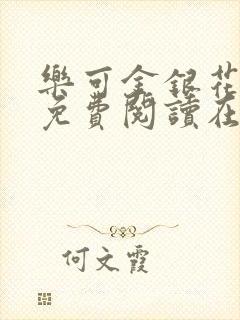 樂可金銀花
免費閱讀在
何文霞